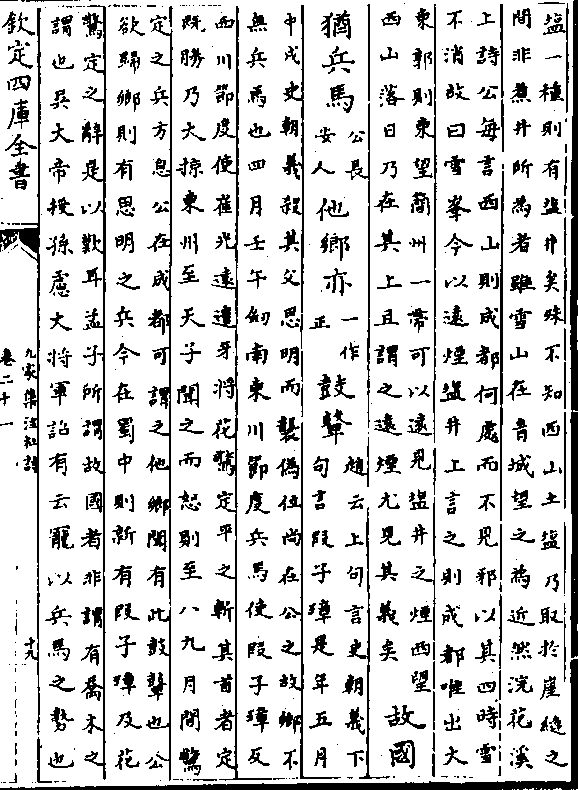 塩一種則有塩井矣殊不知西山土塩乃取扵崖縫之
間非煮井所為者雖雪山在青城望之為近然浣花溪
上詩公每言西山則成都何處而不見邪以其四時雪
不消故曰雪峯今以遠煙塩井上言之則成都唯出大
東郭則東望簡州一帶可以遠見塩井之煙西望
西山落日乃在其上且謂之遠煙尤見其義矣 故國
猶兵馬 公長安人 他鄉亦 一作正 鼓鼙 趙云上句言史朝義下句言段子璋是年五月
中戍史朝義殺其父思明而襲偽位尚在公之故鄉不
無兵馬也四月壬午劍南東川節度兵馬使段子璋反
西川節度使崔光遠遣牙將花驚定平之斬其首者定
既勝乃大掠東川至天子聞之而怒則至八九月間驚
定之兵方息公在成都可謂之他鄉聞有此鼓鼙也公
欲歸鄉則有思明之兵今在蜀中則新有段子璋及花
驚定之辭是以歎耳孟子所謂故國者非謂有喬木之
謂也吳大帝授孫慮大將軍詔有云寵以兵馬之勢也
欽定四庫全書
九家集注杜詩
卷二十一
十九